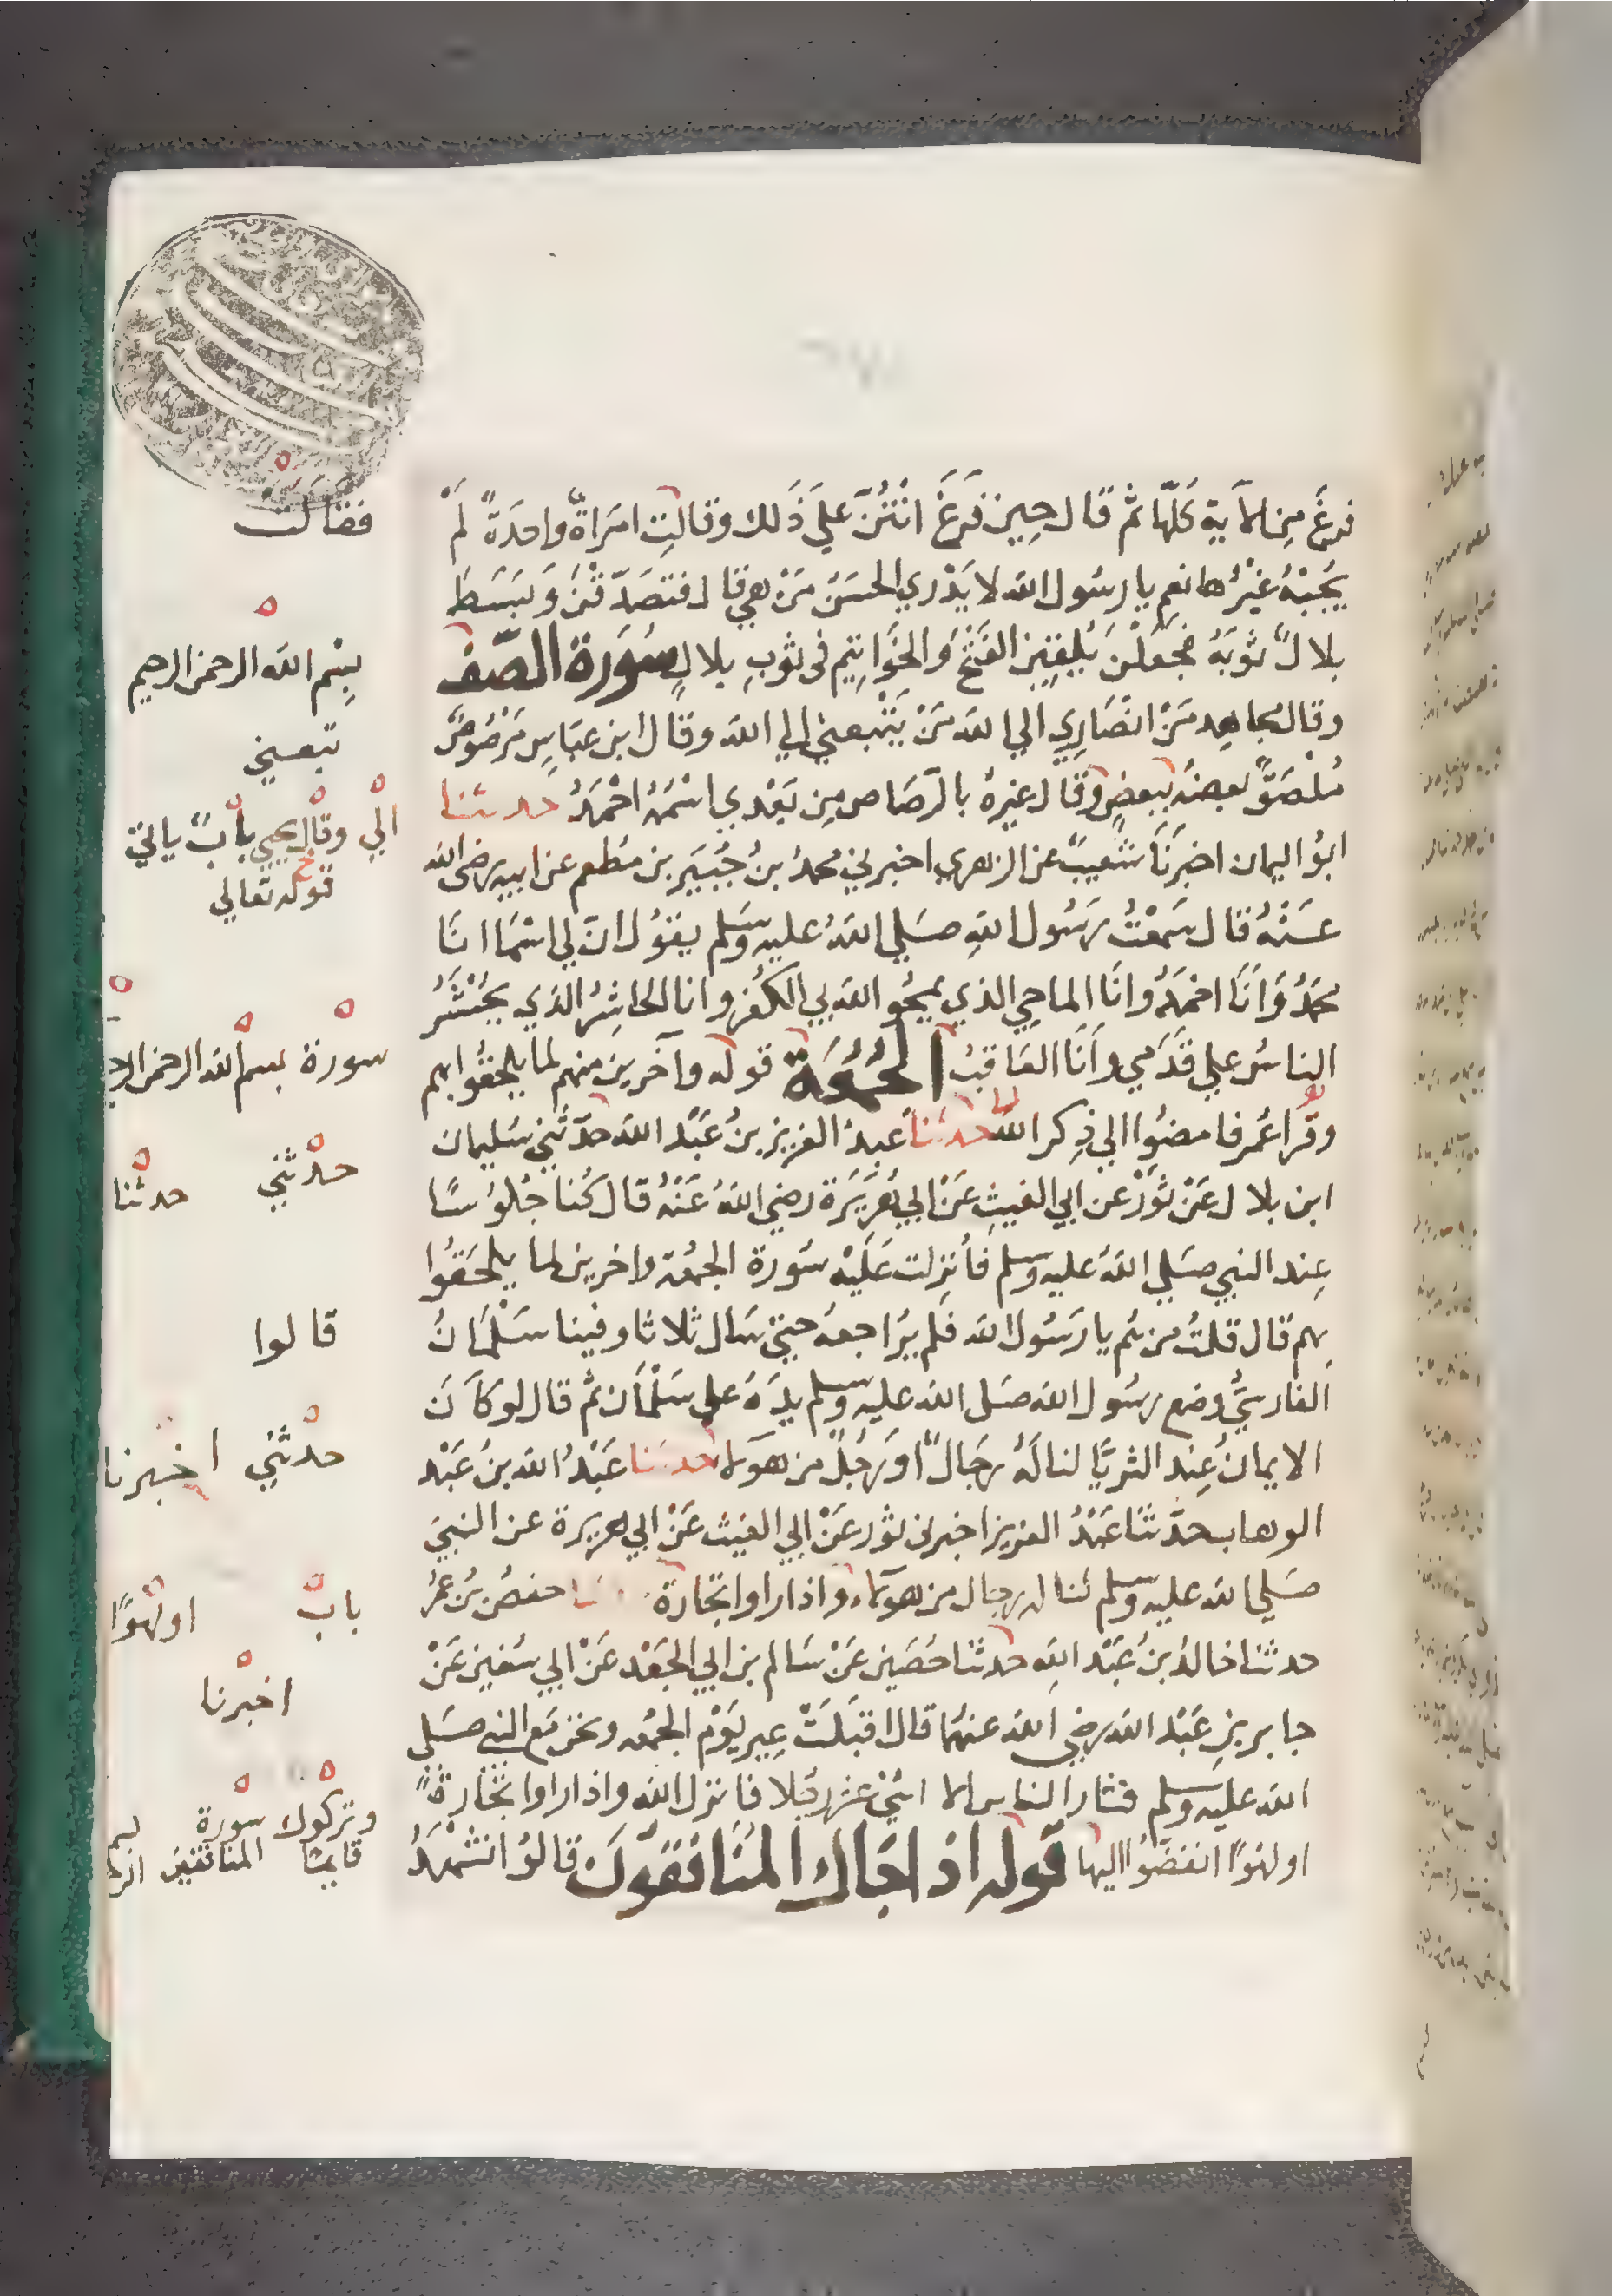 فرغ من الآية كلها ثم قال حين فرغ انتن علي ذلك وقالت امراة واحدة لم
يجبه غيرها نعم يا رسول الله لا يدري الحسن من هي قال فتصدقن وبسط
بلال ثوبه فجعلن يلقين الفتخ والخواتيم في ثوب بلال سورة الصف
وقال مجاهد من انصاري الي الله من يتبعني الي الله وقال ابن عباس مرصوص
ملصق بعضه ببعض وقال غيره بالرصاص من بعدي اسمه احمد حدثنا
ابو اليمان اخبرنا شعيب عن الزهري اخبرني محمد بن جبير بن مطعم عن ابيه رضي الله
عنه قال سمعت رسول الله صلي الله عليه وسلم يقول ان لي اسما انا
محمد وانا احمد وانا الماحي الذي يمحو الله بي الكفر وانا الحاشر الذي يحشر
الناس علي قدمي وانا العاقب الجمعة قوله وآخرين منهم لما يلحقوا بهم
وقرا عمر فامضوا الي ذكر الله حدثنا عبد العزيز بن عبد الله حدثني سليمان
ابن بلال عن ثور عن ابي الغيث عن ابي هريرة رضي الله عنه قال كنا جلوسا
عند النبي صلي الله عليه وسلم فأنزلت عليه سورة الجمعة واخرين لما يلحقوا
بهم قال قلت من هم يا رسول الله فلم يراجعه حتي سال ثلاثا وفينا سلمان
الفارسي وضع رسول الله صلي الله عليه وسلم يده علي سلمان ثم قال لو كان
الايمان عند الثريا لناله رجال او رجل من هولاء حدثنا عبد الله بن عبد
الوهاب حدثنا عبد العزيز اخبرني ثور عن ابي الغيث عن ابي هريرة عن النبي
صلي الله عليه وسلم لناله رجال من هولاء واذا راوا تجارة حدثنا حفص بن عمر
حدثنا خالد بن عبد الله حدثنا حصين عن سالم بن ابي الجعد عن ابي سفين عن
جابر بن عبد الله رضي الله عنهما قال اقبلت عير يوم الجمعة ونحن مع النبي صلي
الله عليه وسلم فثار الناس الا اثني عشر رجلا فانزل الله واذا راوا تجارة
او لهوا انفضوا اليها قوله اذا جاك المنافقون قالوا نشهد
فقالت
بسم الله الرحمن الرحيم
تبعني
الي وقال يحيي باب ياتي
قوله تعالي
سورة بسم الله الرحمن
حدثني حدثنا
قالوا
حدثني اخبرنا
باب او لهوا
اخبرنا
وتركوك سورة
قايما المنافقين